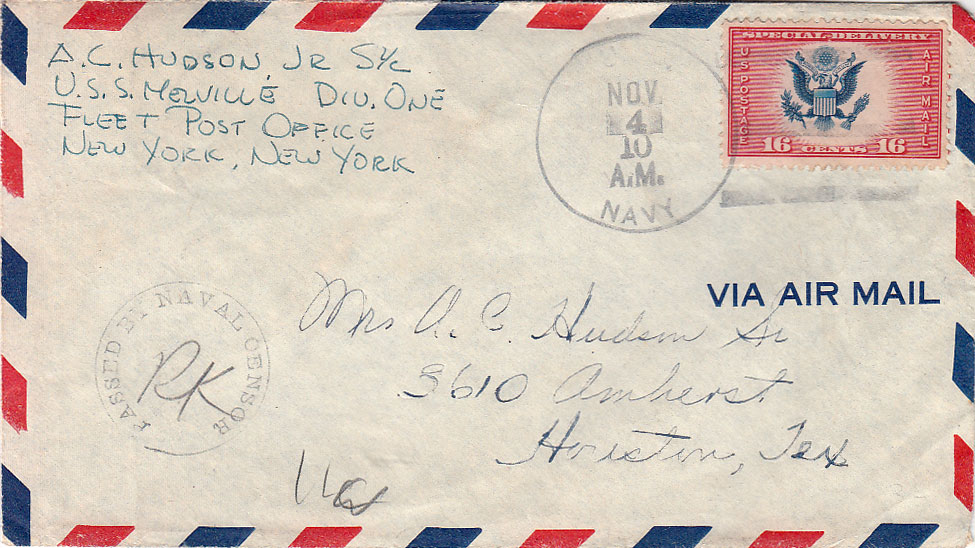 A.C. HUDSON, JR S1/c
U.S.S. MELVILLE DIV. ONE
FLEET POST OFFICE
NEW YORK, NEW YORK
NOV.
4
10
A.M.
NAVY
SPECIAL DELIVERY
US POSTAGE
AIR MAIL
16 CENTS 16
VIA AIR MAIL
PASSED BY NAVAL CENSOR
RK
Mrs A. C. Hudson Sr
3610 Amherst
Houston, Tex